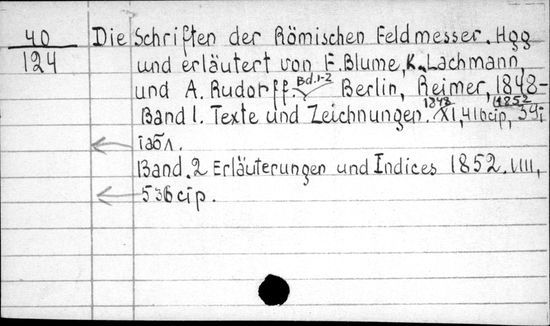 40
124
Die Schriften der Römischen Feldmesser. Hgg
und erläutert von F. Blume, K. Lachmann,
und A. Rudorff. Bd. 1-2 Berlin, Reimer, 1848-
1852
Band 1. Texte und Zeichnungen. 1848 XI, 416 cip,
табл.
Band. 2 Erläuterungen und Indices 1852. VIII,
536 cip.